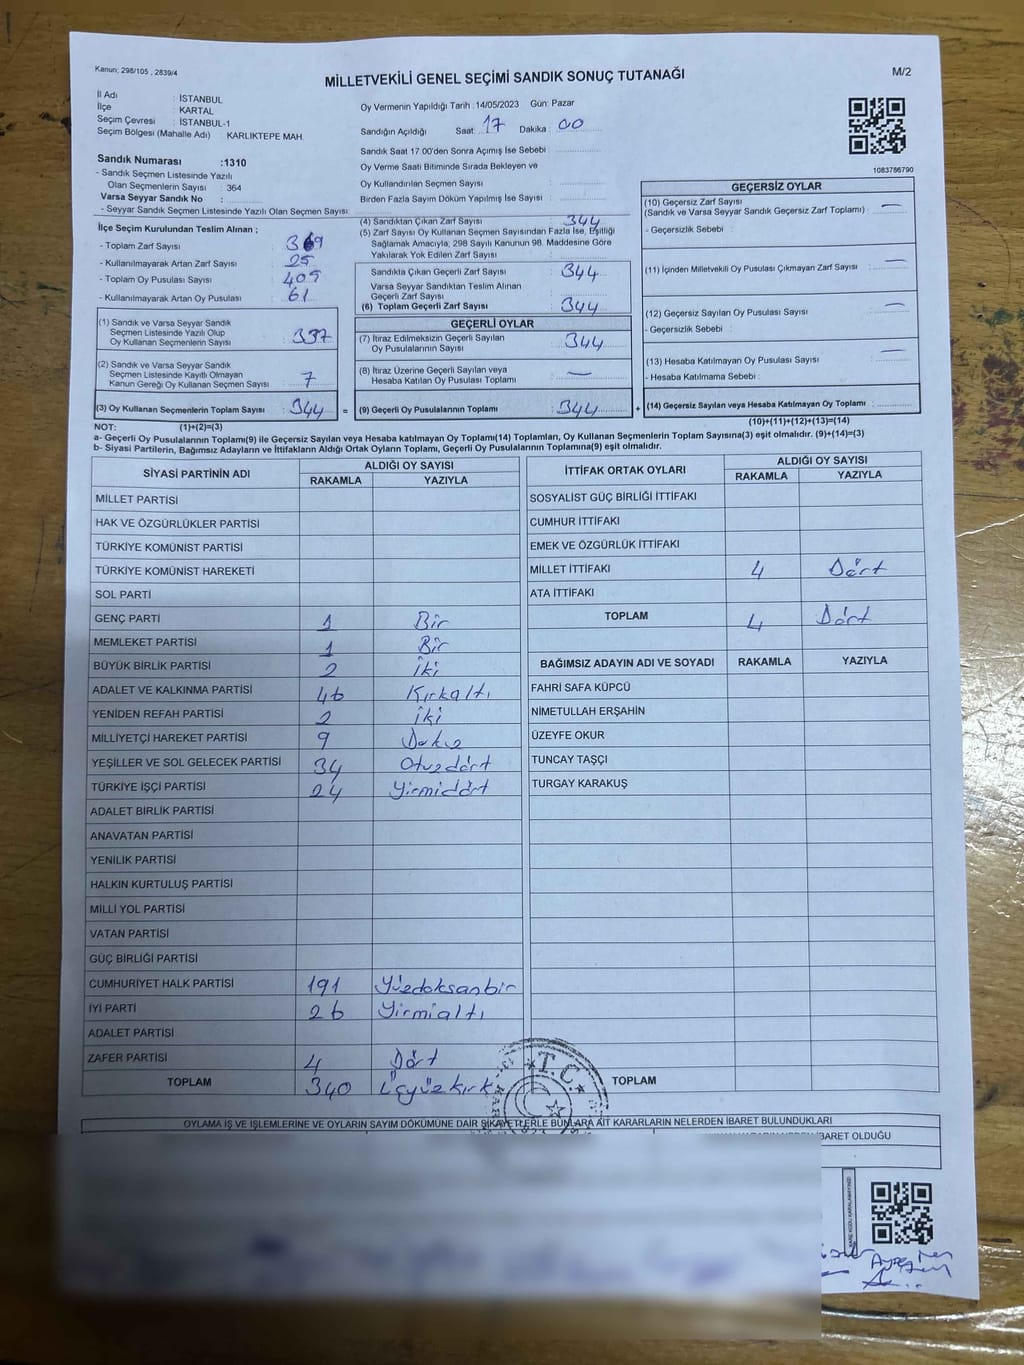 Kanun; 298/105 , 2839/4
MİLLETVEKİLİ GENEL SEÇİMİ SANDIK SONUÇ TUTANAĞI
M/2
İl Adı : İSTANBUL
İlçe : KARTAL
Seçim Çevresi : İSTANBUL-1
Seçim Bölgesi (Mahalle Adı) : KARLIKTEPE MAH.
Sandık Numarası :1310
- Sandık Seçmen Listesinde Yazılı
Olan Seçmenlerin Sayısı : 364
Varsa Seyyar Sandık No :
- Seyyar Sandık Seçmen Listesinde Yazılı Olan Seçmen Sayısı:
Oy Vermenin Yapıldığı Tarih : 14/05/2023 Gün: Pazar
Sandığın Açıldığı Saat: 17 Dakika : 00
Sandık Saat 17.00'den Sonra Açımış İse Sebebi :
Oy Verme Saati Bitiminde Sırada Bekleyen ve
Oy Kullandırılan Seçmen Sayısı :
Birden Fazla Sayım Döküm Yapılmış İse Sayısı :
1083786790
İlçe Seçim Kurulundan Teslim Alınan ;
- Toplam Zarf Sayısı : 369
- Kullanılmayarak Artan Zarf Sayısı : 25
- Toplam Oy Pusulası Sayısı : 405
- Kullanılmayarak Artan Oy Pusulası : 61
(1) Sandık ve Varsa Seyyar Sandık
Seçmen Listesinde Yazılı Olup
Oy Kullanan Seçmenlerin Sayısı : 337
(2) Sandık ve Varsa Seyyar Sandık
Seçmen Listesinde Kayıtlı Olmayan
Kanun Gereği Oy Kullanan Seçmen Sayısı : 7
(3) Oy Kullanan Seçmenlerin Toplam Sayısı : 344 =
(4) Sandıktan Çıkan Zarf Sayısı : 344
(5) Zarf Sayısı Oy Kullanan Seçmen Sayısından Fazla İse, Eşitliği
Sağlamak Amacıyla, 298 Sayılı Kanunun 98. Maddesine Göre
Yakılarak Yok Edilen Zarf Sayısı :
Sandıkta Çıkan Geçerli Zarf Sayısı : 344
Varsa Seyyar Sandıktan Teslim Alınan
Geçerli Zarf Sayısı :
(6) Toplam Geçerli Zarf Sayısı : 344
GEÇERLİ OYLAR
(7) İtiraz Edilmeksizin Geçerli Sayılan
Oy Pusulalarının Sayısı : 344
(8) İtiraz Üzerine Geçerli Sayılan veya
Hesaba Katılan Oy Pusulası Toplamı : —
(9) Geçerli Oy Pusulalarının Toplamı : 344 +
GEÇERSİZ OYLAR
(10) Geçersiz Zarf Sayısı : —
(Sandık ve Varsa Seyyar Sandık Geçersiz Zarf Toplamı)
- Geçersizlik Sebebi :
(11) İçinden Milletvekili Oy Pusulası Çıkmayan Zarf Sayısı : —
(12) Geçersiz Sayılan Oy Pusulası Sayısı : —
- Geçersizlik Sebebi :
(13) Hesaba Katılmayan Oy Pusulası Sayısı : —
- Hesaba Katılmama Sebebi :
(14) Geçersiz Sayılan veya Hesaba Katılmayan Oy Toplamı :
NOT: (1)+(2)=(3) (10)+(11)+(12)+(13)=(14)
a- Geçerli Oy Pusulalarının Toplamı(9) ile Geçersiz Sayılan veya Hesaba katılmayan Oy Toplamı(14) Toplamları, Oy Kullanan Seçmenlerin Toplam Sayısına(3) eşit olmalıdır. (9)+(14)=(3)
b- Siyasi Partilerin, Bağımsız Adayların ve İttifakların Aldığı Ortak Oyların Toplamı, Geçerli Oy Pusulalarının Toplamına(9) eşit olmalıdır.
SİYASİ PARTİNİN ADI ALDIĞI OY SAYISI
RAKAMLA YAZIYLA
MİLLET PARTİSİ
HAK VE ÖZGÜRLÜKLER PARTİSİ
TÜRKİYE KOMÜNİST PARTİSİ
TÜRKİYE KOMÜNİST HAREKETİ
SOL PARTİ
GENÇ PARTİ 1 Bir
MEMLEKET PARTİSİ 1 Bir
BÜYÜK BİRLİK PARTİSİ 2 iki
ADALET VE KALKINMA PARTİSİ 46 Kırkaltı
YENİDEN REFAH PARTİSİ 2 iki
MİLLİYETÇİ HAREKET PARTİSİ 9 Dokuz
YEŞİLLER VE SOL GELECEK PARTİSİ 34 Otuzdört
TÜRKİYE İŞÇİ PARTİSİ 24 Yirmidört
ADALET BİRLİK PARTİSİ
ANAVATAN PARTİSİ
YENİLİK PARTİSİ
HALKIN KURTULUŞ PARTİSİ
MİLLİ YOL PARTİSİ
VATAN PARTİSİ
GÜÇ BİRLİĞİ PARTİSİ
CUMHURİYET HALK PARTİSİ 191 Yüzdoksanbir
İYİ PARTİ 26 Yirmialtı
ADALET PARTİSİ
ZAFER PARTİSİ 4 Dört
TOPLAM 340 Üçyüzkırk
İTTİFAK ORTAK OYLARI ALDIĞI OY SAYISI
RAKAMLA YAZIYLA
SOSYALİST GÜÇ BİRLİĞİ İTTİFAKI
CUMHUR İTTİFAKI
EMEK VE ÖZGÜRLÜK İTTİFAKI
MİLLET İTTİFAKI 4 Dört
ATA İTTİFAKI
TOPLAM 4 Dört
BAĞIMSIZ ADAYIN ADI VE SOYADI RAKAMLA YAZIYLA
FAHRİ SAFA KÜPCÜ
NİMETULLAH ERŞAHİN
ÜZEYFE OKUR
TUNCAY TAŞÇI
TURGAY KARAKUŞ
TOPLAM
T.C.
OYLAMA İŞ VE İŞLEMLERİNE VE OYLARIN SAYIM DÖKÜMÜNE DAİR ŞİKAYETLERLE BUNLARA AİT KARARLARIN NELERDEN İBARET BULUNDUKLARI
İBARET OLDUĞU